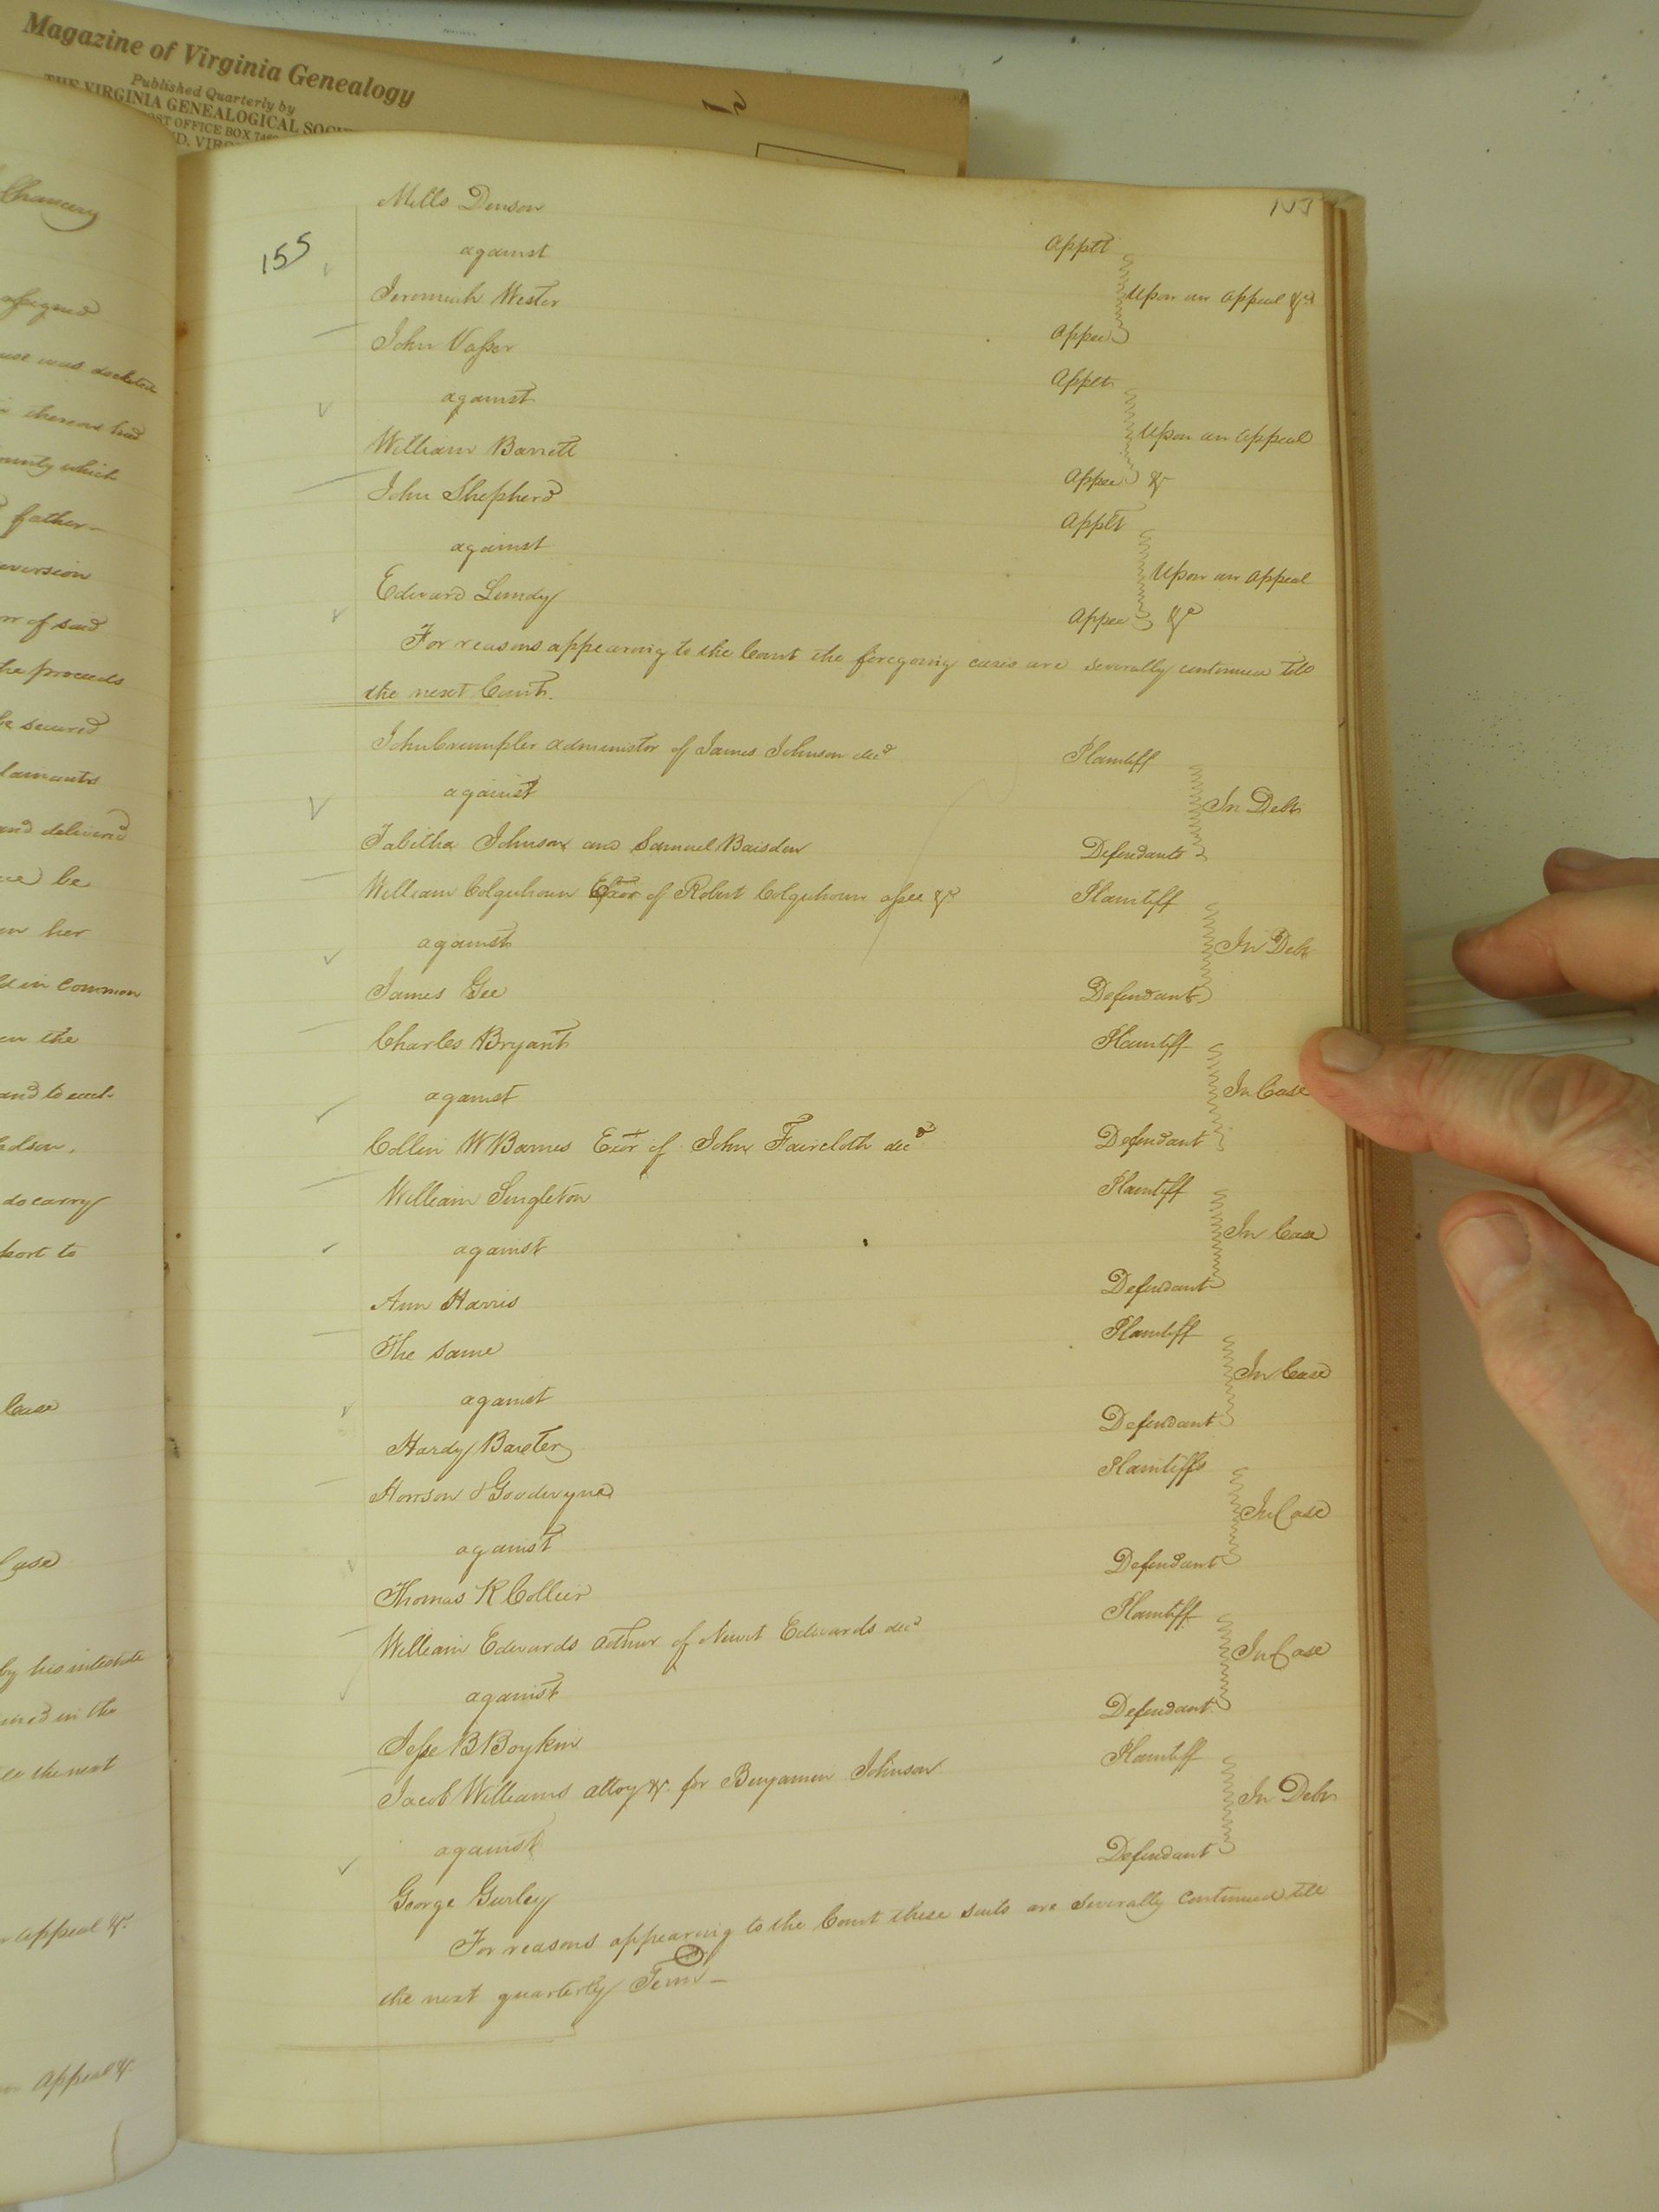 Magazine of Virginia Genealogy
Published Quarterly by
THE VIRGINIA GENEALOGICAL SOCI
POST OFFICE BOX
D, VIR
Chancery
assigned
was docketed
thereon had
county which
father
reversion
of said
the proceeds
be secured
lainants
and delivered
be
on her
in common
on the
and to
do carry
port to
Case
Case
by his intestate
in the
the next
Appeal &c.
Appeal &c.
155
155
Mills Denson Applt
against Upon an Appeal &c
Jeremiah Wester Appee
John Vasser Applt
against Upon an Appeal
William Barrett Appee &c
John Shepherd Applt
against Upon an Appeal
Edward Lundy Appee &c
For reasons appearing to the Court the foregoing cases are severally continued till
the next Court.
John Crumpler administor of James Johnson decd Plaintiff
against In Debt
Tabitha Johnson and Samuel Baisden Defendants
William Colquhoun Exor of Robert Colquhoun assee &c Plaintiff
against In Debt
James Gee Defendant
Charles Bryant Plaintiff
against In Case
Collin W Barnes Exor of John Faircloth decd Defendant
William Singleton Plaintiff
against In Case
Ann Harris Defendant
The same Plaintiff
against In Case
Hardy Baxter Defendant
Horrson & Goodwyne Plaintiffs
against In Case
Thomas R Collier Defendant
William Edwards admr of Newit Edwards decd Plaintiff
against In Case
Jesse B Boykin Defendant
Jacob Williams attoy &c. for Benjamin Johnson Plaintiff
against In Debt
George Gurley Defendant
For reasons appearing to the Court these suits are severally continued till
the next quarterly Term –